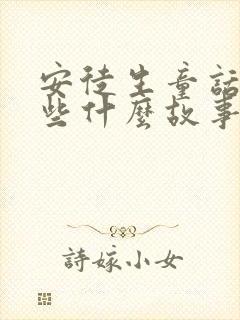 安徒生童話
些什麼故事
詩嫁小女